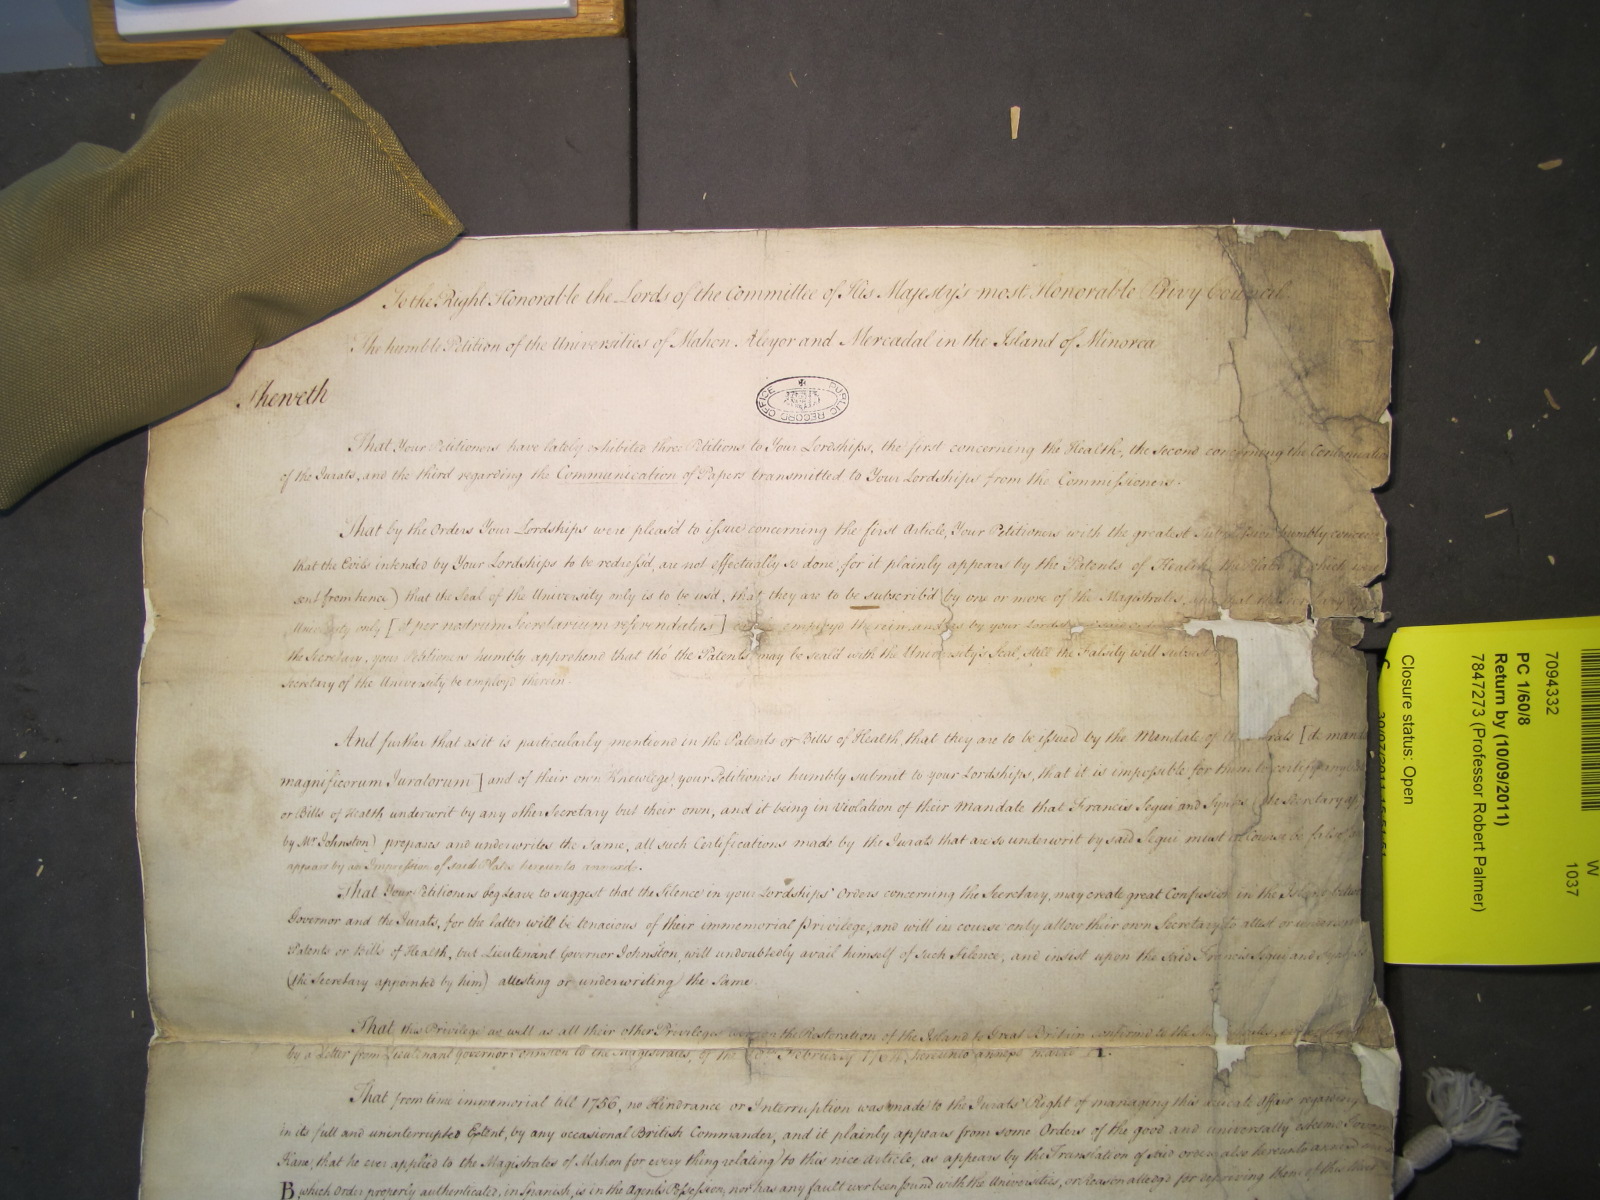 To the Right Honorable the Lords of the Committee of His Majesty's most Honorable Privy Council.
The humble Petition of the Universities of Mahon Aleyor and Mercadal in the Island of Minorca
Sheweth
PUBLIC RECORD OFFICE
That Your Petitioners have lately exhibited three Petitions to Your Lordships, the first concerning the Health, the Second concerning the Continuation
of the Jurats, and the third regarding the Communication of Papers transmitted to Your Lordships from the Commissioners.
That by the Orders Your Lordships were pleas'd to issue concerning the first Article, Your Petitioners with the greatest Submission humbly
that the Evils intended by Your Lordships to be redress'd, are not effectually so done, for it plainly appears by the Patents of Health, the Plate which were
sent from hence) that the Seal of the University only is to be us'd, that they are to be subscrib'd by one or more of the Magistrates, and that the
University only [et per nostrum Secretarium referendatus] employ'd therein, and as by your Lordships
the Secretary, your Petitioners humbly apprehend that tho' the Patents may be seal'd with the University's Seal, still the Falsity will subsist
Secretary of the University be employ'd therein.
And further that as it is particularly mention'd in the Patents or Bills of Health, that they are to be issued by the Mandate of [de
magnificorum Juratorum] and of their own Knowlege, your Petitioners humbly submit to your Lordships, that it is impossible for them to certify
or Bills of Health underwrit by any other Secretary but their own, and it being in Violation of their Mandate that Francis Segui and Synts (the Secretary
by Mr Johnston) prepares and underwrites the Same, all such Certifications made by the Jurats that are so underwrit by said Segui must of Course be false
appears by an Impression of said Plate hereunto annex'd.
That Your Petitioners beg Leave to suggest that the Silence in your Lordships' Orders concerning the Secretary, may create great Confusion in the Island
Governor and the Jurats, for the latter will be tenacious of their immemorial Privilege, and will in course only allow their own Secretary to attest or
Patents or Bills of Health, but Lieutenant Governor Johnston, will undoubtedly avail himself of Such Silence, and insist upon the said Francis Segui and
(the Secretary appointed by him) attesting or underwriting the Same.
That this Privilege as well as all their other Privileges on the Restoration of the Island to Great Britain confirm'd to the
by a Letter from Lieutenant Governor Johnston to the Magistrates, of the February 1764, hereunto annex'd
That from time immemorial till 1756, no Hindrance or Interruption was made to the Jurats' Right of managing this delicate Affair regarding
in its full and uninterrupted Extent, by any occasional British Commander, and it plainly appears from some Orders of the good and universally
Kane, that he ever applied to the Magistrates of Mahon for every thing relating to this nice Article, as appears by the Translation of said order also hereunto annex'd
B, which Order properly authenticated, in Spanish, is in the Agent's Possession, nor has any fault ever been found with the Universities, or Reason alledg'd for depriving them of this
W
1037
7094332
PC 1/60/8
Return by (10/09/2011)
7847273 (Professor Robert Palmer)
Closure status: Open